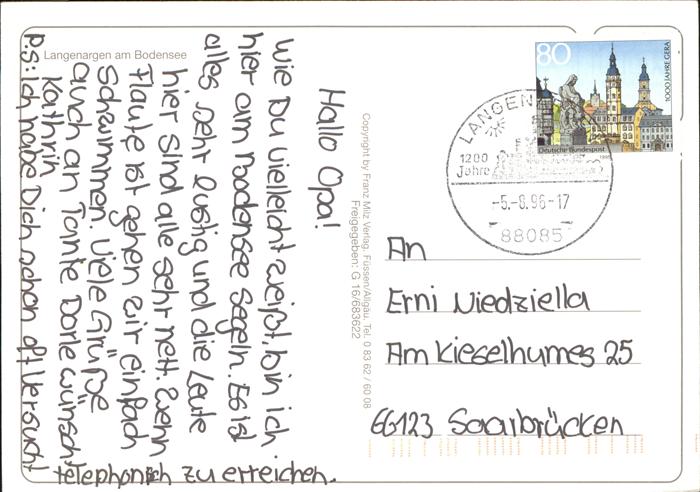 Langenargen am Bodensee
Hallo Opa!
Wie Du vielleicht weißt, bin ich
hier am Boodensee segeln. Es ist
alles sehr lustig und die Leute
hier sind alle sehr nett. Wenn
Flaute ist gehen wir einfach
schwimmen. Viele Grüße
auch an Tante Dorle wünscht
Kathrin
P.S: Ich habe Dich schon oft versucht
telephonisch zu erreichen.
Copyright by Franz Milz Verlag, Füssen/Allgäu, Tel. 0 83 62 / 60 08
Freigegeben: G 16/683622
80
1000 JAHRE GERA
Deutsche Bundespost
1200
Jahre
-5.-8.96-17
88085
An
Erni Niedziella
Am Kieselhumes 25
66123 Saarbrücken